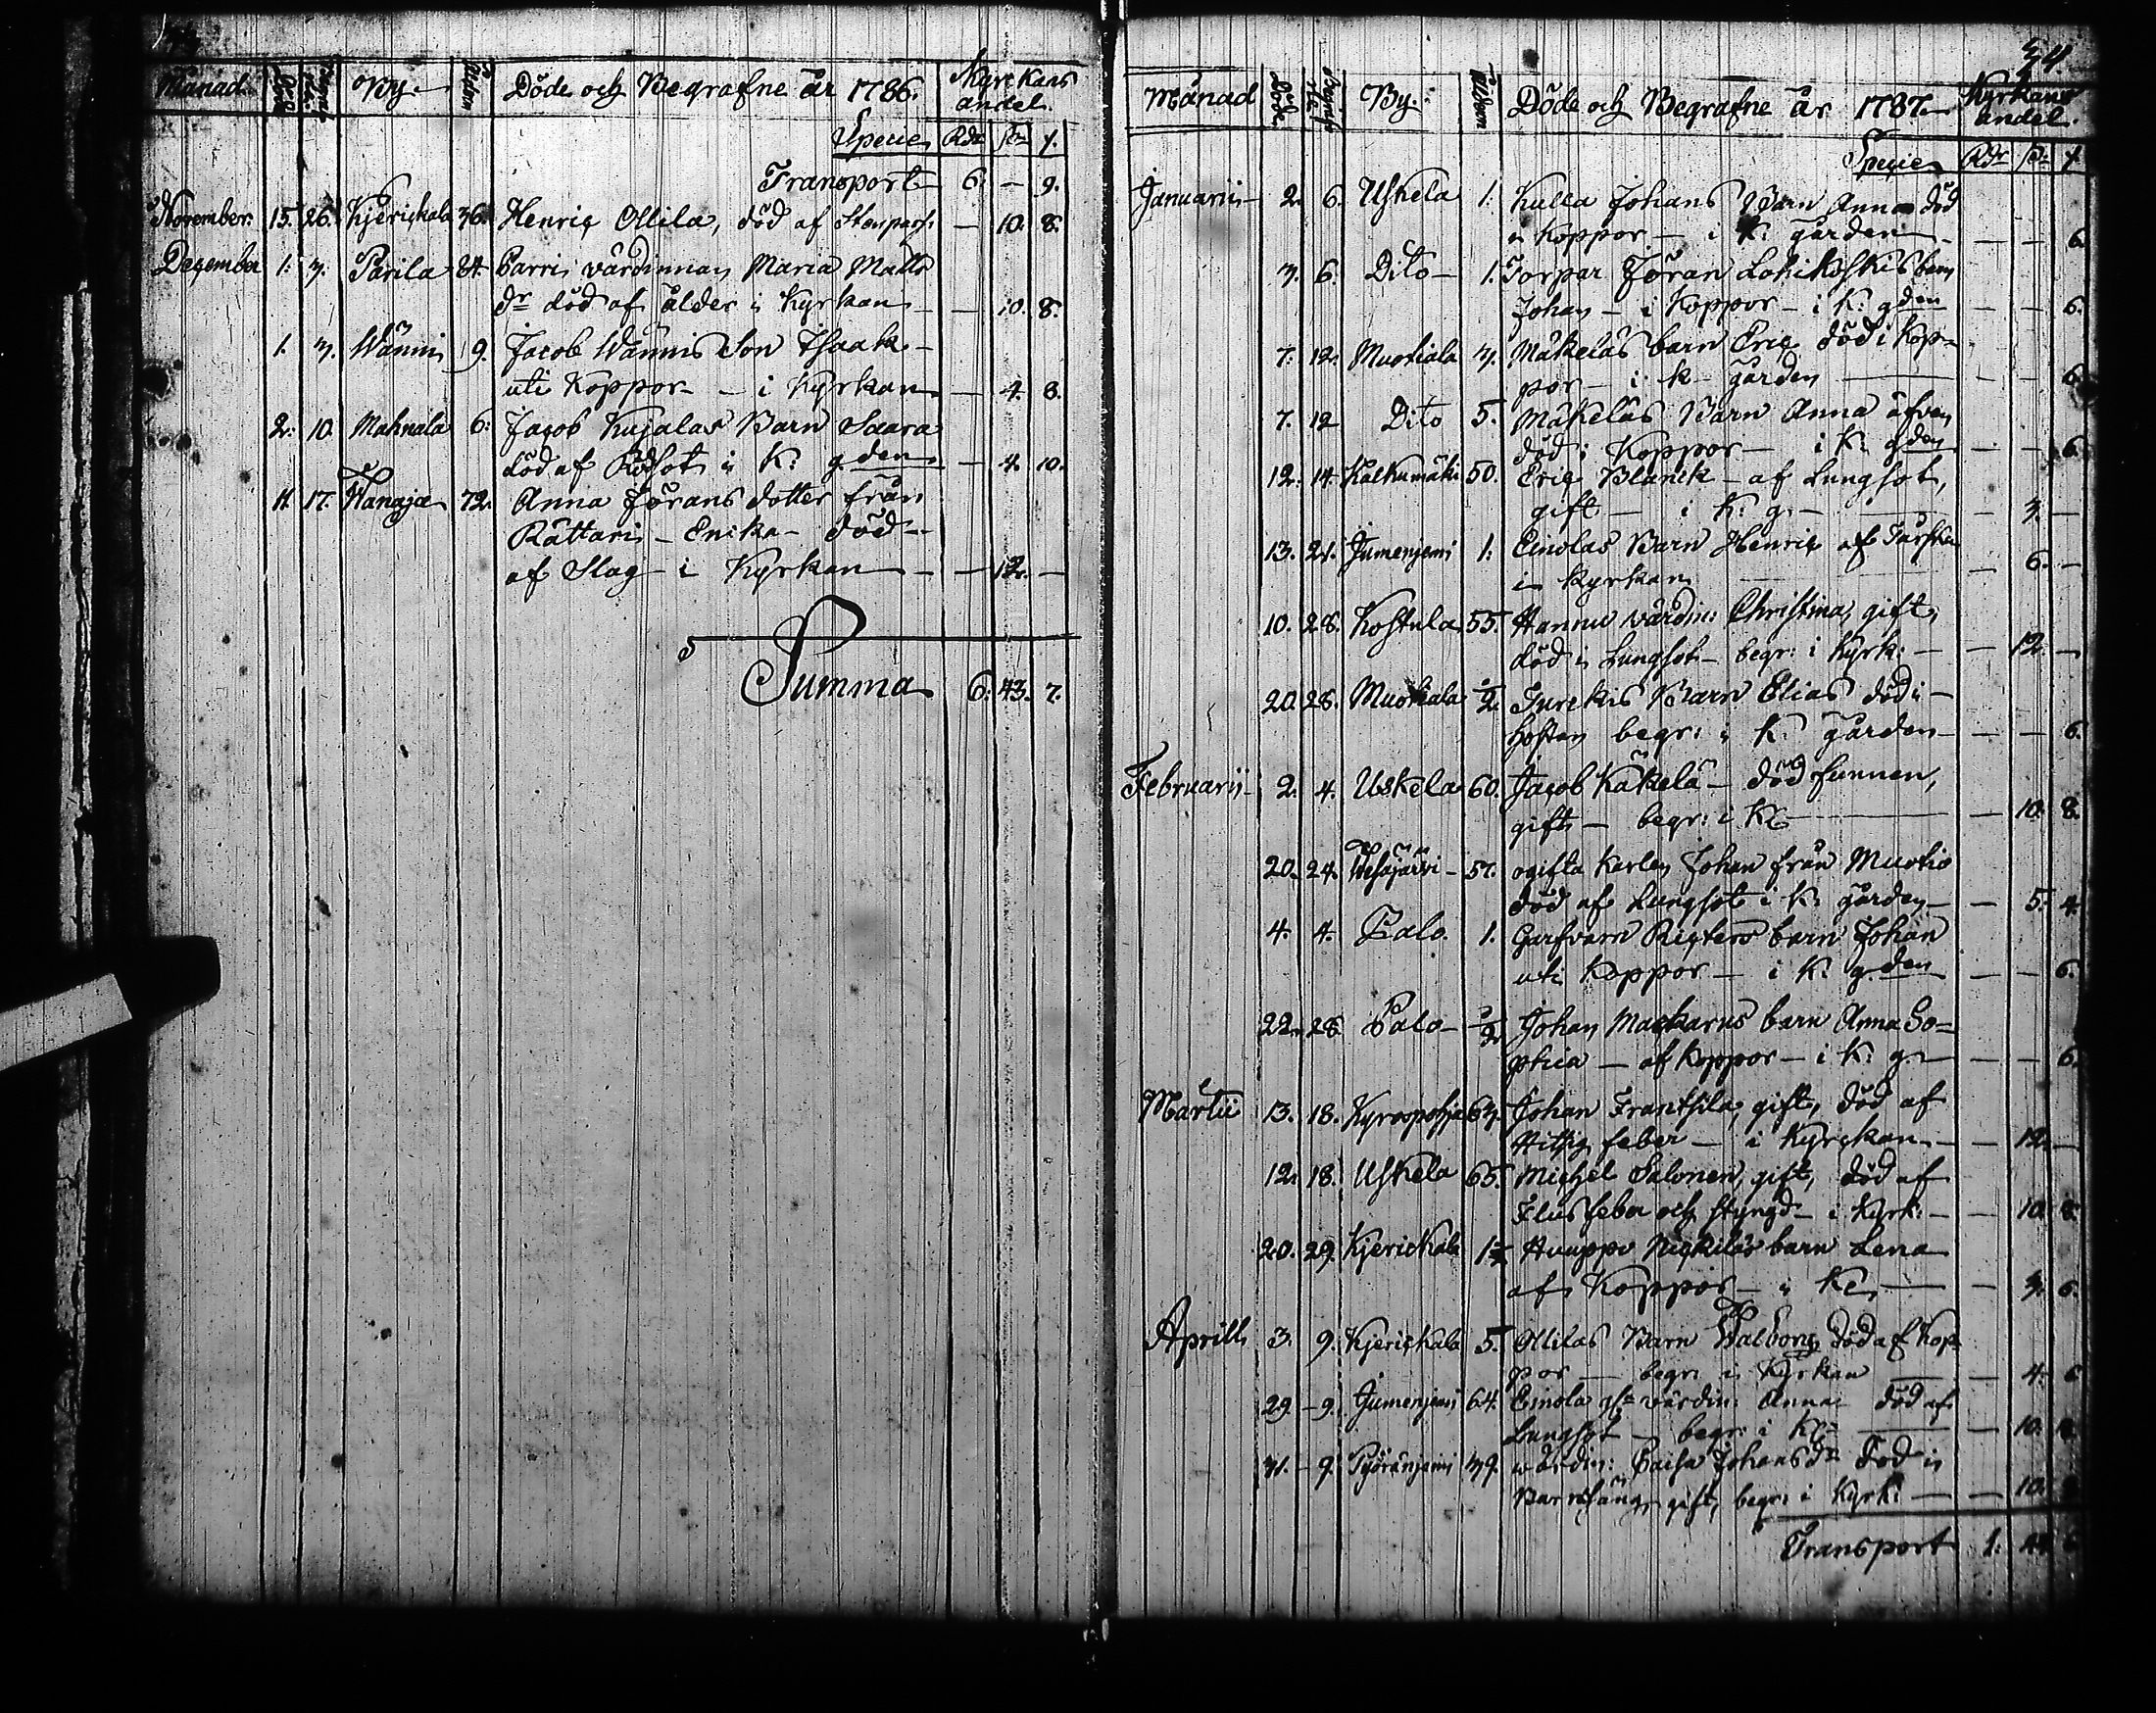 Månad. Döde By. Ålder Döde och Begrafne år 1786. Kyrckans andel.
Specie Rdr ß r.
Transport 6: — 9.
November 15. 26. Kjerickala 36. Henric Ollila, död af — 10. 8.
December 1: 3. Parila 84. Parri värdinnan Maria Matts
dr död af ålder i Kyrkan — 10. 8.
1. 3. Wänni 9. Jacob Wännis Son Isaak
uti Koppor — i Kyrkan — 4. 8.
2. 10. Mahnala 6: Jacob Kujalas Barn Saara
död af Rödsot i K: gden — 4. 10.
11. 17. Wanaja 72. Anna Jörans dotter från
Rättari - Enika - död -
af Slag i Kyrkan — 12. —
Summa 6: 43. 7.
54.
Månad Döde By. Ålder Döde och Begrafne år 1787. Kyrkans andel.
Specie Rdr ß r
Januarii 2. 6. Uskela 1: Kulla Johans Barn Anna död
i Koppor — i K. gården — — 6.
3. 6. Dito 1. Torpar Jöran barn
Johan — i Koppor — i K: gden — — 6.
7. 12. Muotiala 3. Mäkeläs barn Eric död i Kop-
por — i k gården — — 6.
7. 12 Dito 5. Mäkeläs Barn Anna äfven
död i Koppor — i K: gden — — 6.
12. 14. Kalkumäki 50. Eric Blanck — af Lungsot,
gift — i K: g. — 3. —
13. 21. Jumenjemi 1: Einolas Barn Henric af
i Kyrkan — 6. —
10. 28. Kostula 55. Hannu värdin: Christina, gift,
död i Lungsot — begr: i Kyrk: — 12. —
20. 28. Muotiala ½ Jurckis Barn Elias död i
hostan begr: i K. gården — — 6.
Februarii 2. 4. Uskela 60. Jacob Käkelä — död funnen,
gift — begr: i K — 10. 8.
20. 24. Wesajärvi 57. ogifta karlen Johan från Muotio
död af Lungsot i K: gården — 5. 4.
4. 4. Palo. 1. Garfvarn Richters barn Johan
uti Koppor — i K: gden — — 6.
22. 28 Palo ½ Johan Mackarus barn Anna So-
phia — af koppor — i K: g. — — 6.
Martii 13. 18. Kyröspohja 63. Johan Frantsila, gift, död af
Hittig feber — i Kyrckan — 12. —
12. 18. Uskela 65. Michel Salonen, gift, död af
Flusfeber och styngd — i Kyrk: — 10. 8.
20. 29. Kjerickala 1½ Huuppo barn Lena
af Koppor — i K — 3. 6.
Aprill 3. 9. Kjerickala 5. Ollilas Barn Walborg död af Kop-
por — begr: i Kyrkan — 4. 6
29. — 9. Jumenjemi 64. Einola värdin: Anna död af
Lungsot — begr: i K — 10.
31. — 9. Pyöränjemi 39. wärdin: Caisa Johansdr död i
Barnsäng, gift, begr: i Kyrk: — 10.
Transport 1: